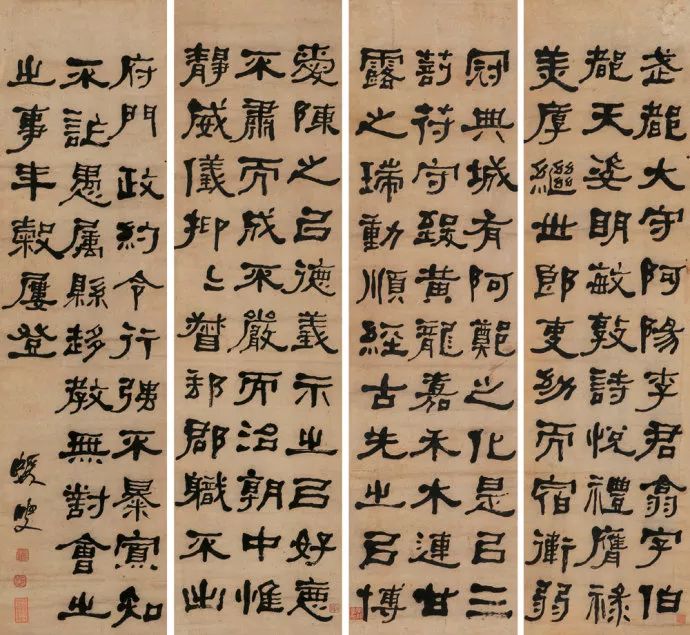 武都大守阿陽李君翕字伯
都天姿明敏敦詩悅禮膺祿
美厚繼世郎吏幼而宿衛弱
冠典城有阿鄭之化是㠯三
剖符守致黃龍嘉禾木連甘
露之瑞動順經古先之㠯博
愛陳之㠯德義示之㠯好惡
不肅而成不嚴而治朝中惟
靜威儀抑〻督郵郡職不出
府門政約令行強不暴寡知
不詐愚属縣趍教無對會之
之事年穀屢登
蝯叟